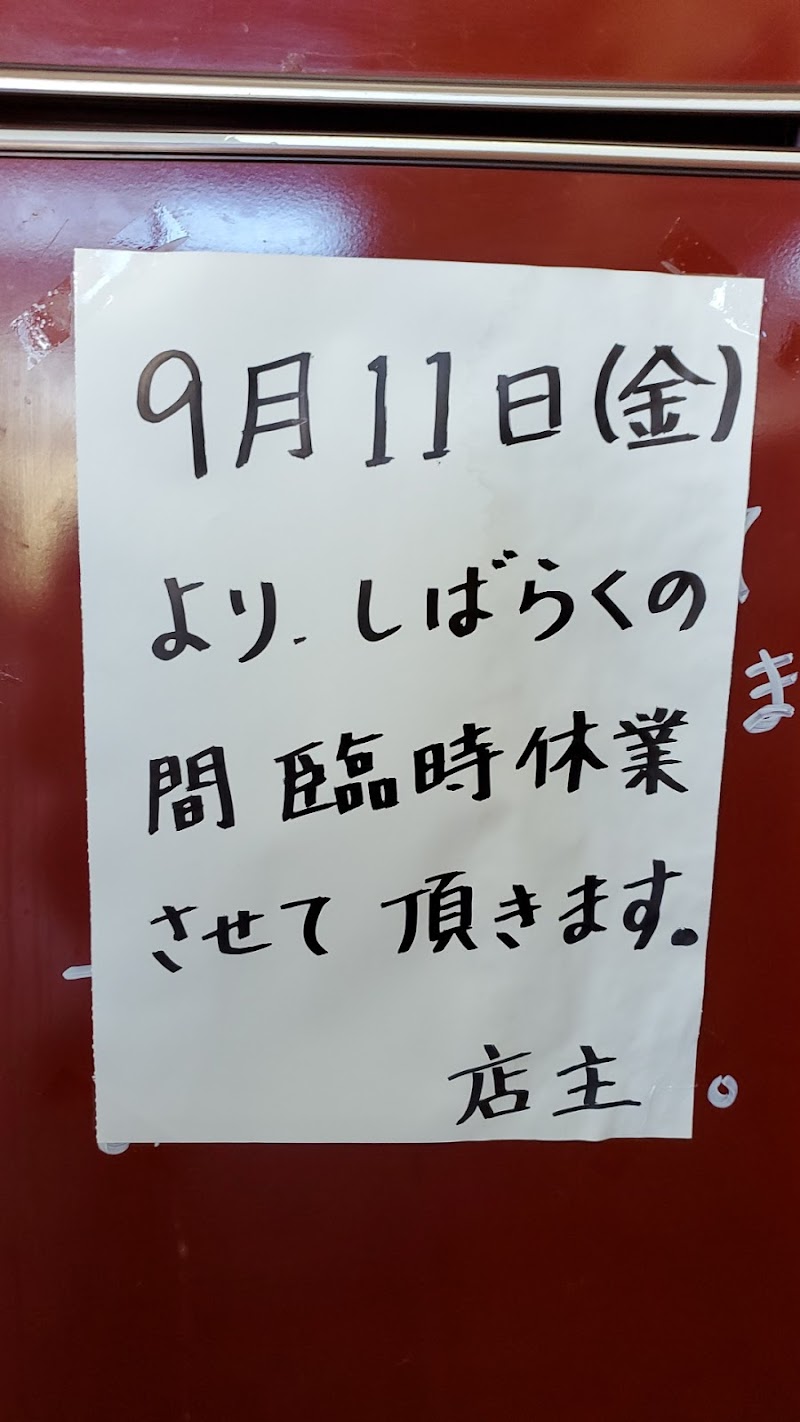 9月11日(金)
より、しばらくの
間臨時休業
させて頂きます。
店主
ま
。